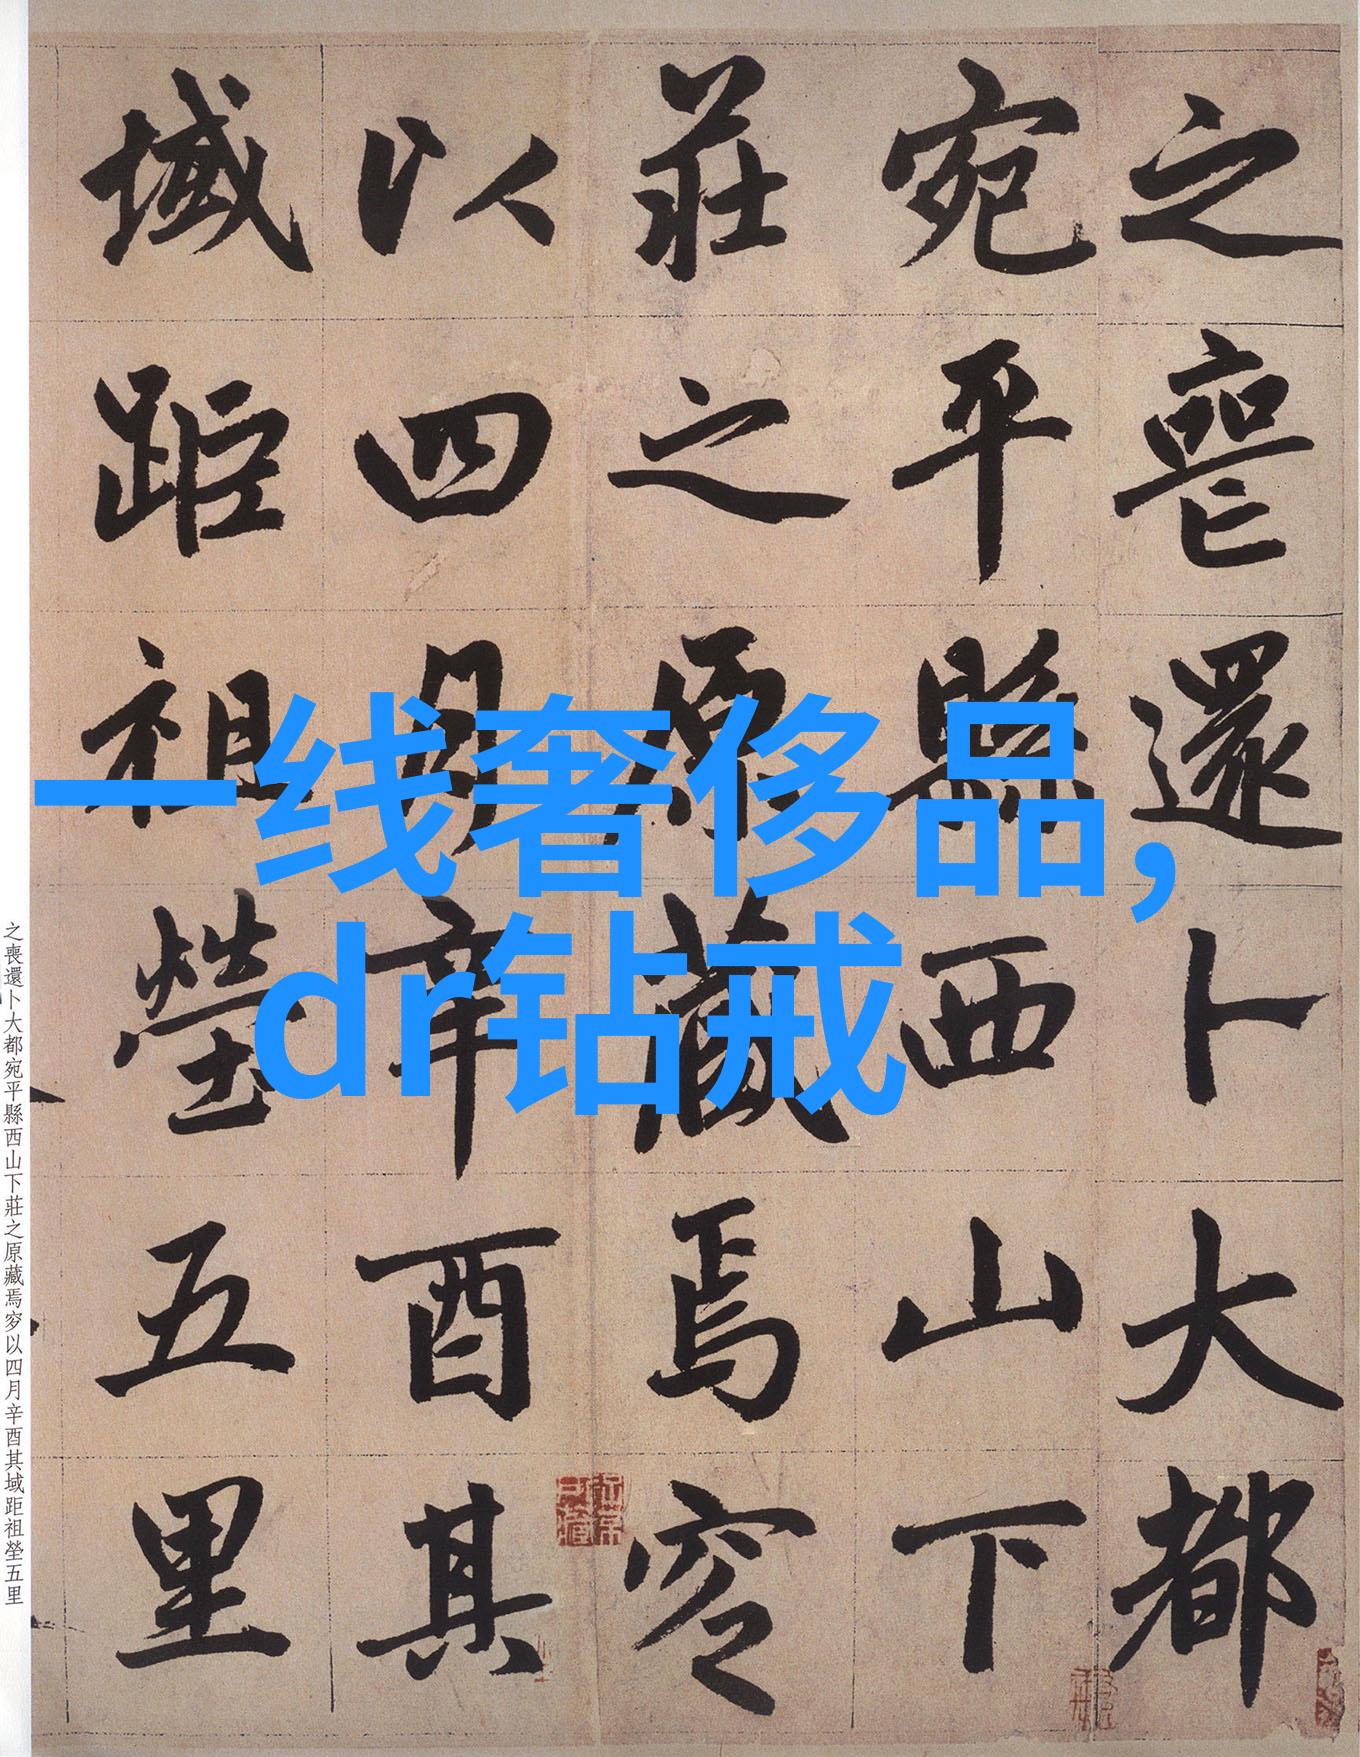 之喪還卜大都
宛平縣西山下
莊之原藏焉穸
以四月辛酉其
域距祖塋五里
一线奢侈品,
dr钻戒
之喪還卜大都宛平縣西山下莊之原藏焉穸以四月辛酉其域距祖塋五里